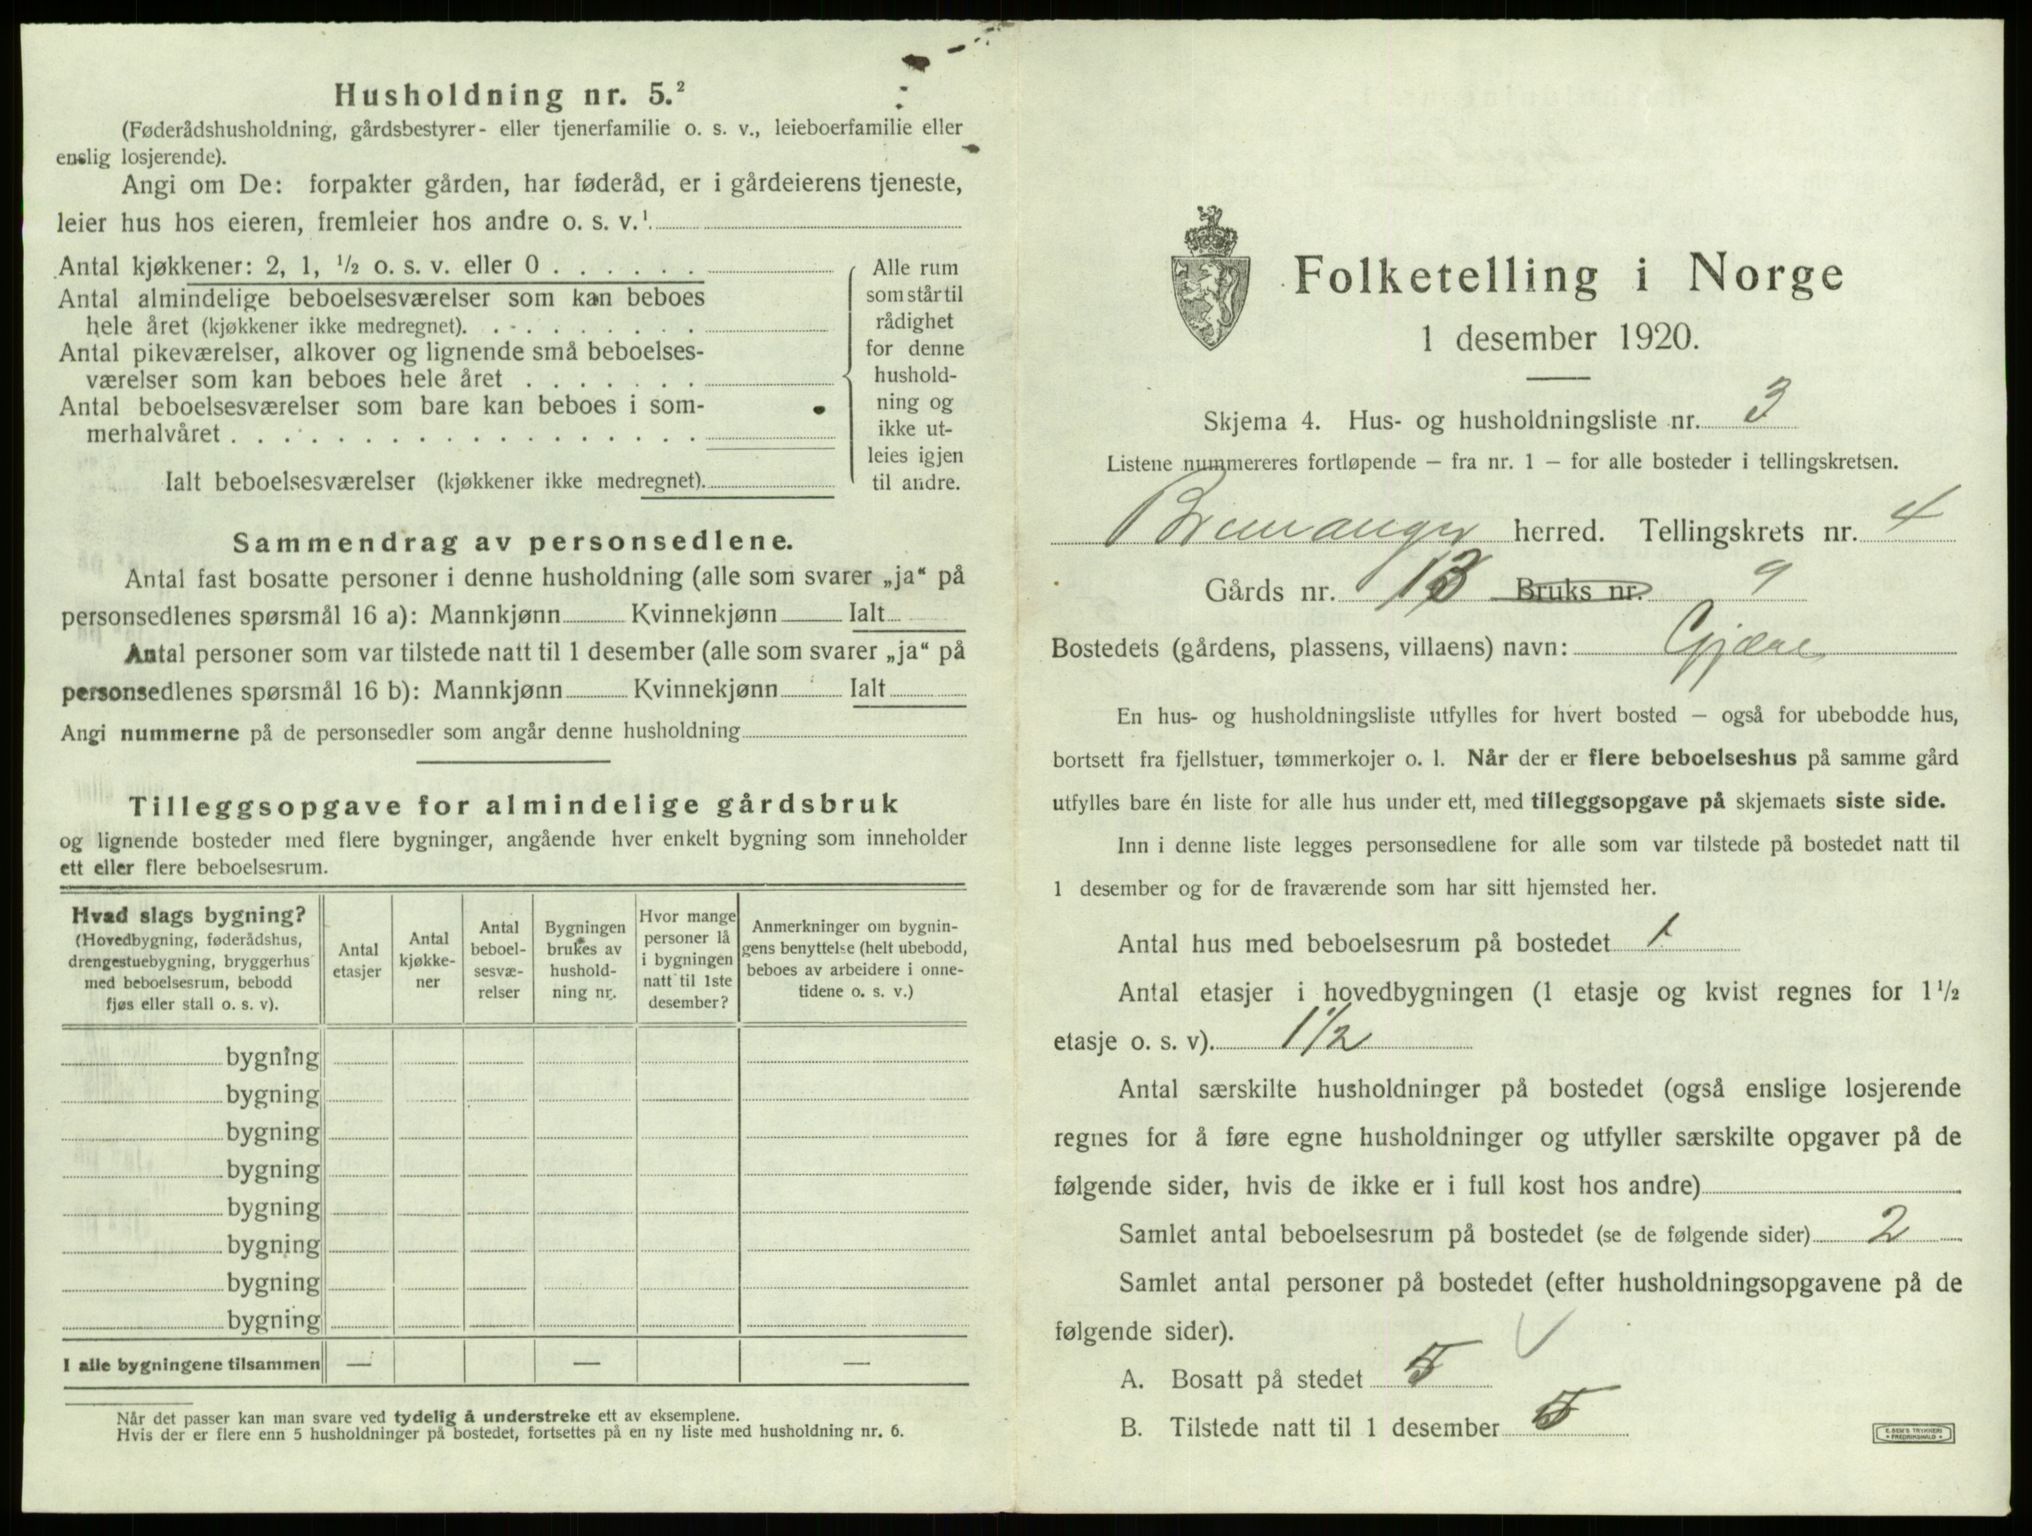 Husholdning nr. 5.²
(Føderådshusholdning, gårdsbestyrer- eller tjenerfamilie o. s. v., leieboerfamilie eller
enslig losjerende).
Angi om De: forpakter gården, har føderåd, er i gårdeierens tjeneste,
leier hus hos eieren, fremleier hos andre o. s. v.¹
Antal kjøkkener: 2, 1, ½ o. s. v. eller 0 . . . . . .
Antal almindelige beboelsesværelser som kan beboes
hele året (kjøkkener ikke medregnet). . . . . . . . .
Antal pikeværelser, alkover og lignende små beboelses-
værelser som kan beboes hele året . . . . . . .
Antal beboelsesværelser som bare kan beboes i som-
merhalvåret . . . . . . . . . . . . . . . . . .
Ialt beboelsesværelser (kjøkkener ikke medregnet).
Alle rum
som står til
rådighet
for denne
hushold-
ning og
ikke ut-
leies igjen
til andre.
Sammendrag av personsedlene.
Antal fast bosatte personer i denne husholdning (alle som svarer „ja“ på
personsedlenes spørsmål 16 a): Mannkjønn Kvinnekjønn Ialt
Antal personer som var tilstede natt til 1 desember (alle som svarer „ja“ på
personsedlenes spørsmål 16 b): Mannkjønn Kvinnekjønn Ialt
Angi nummerne på de personsedler som angår denne husholdning
Tilleggsopgave for almindelige gårdsbruk
og lignende bosteder med flere bygninger, angående hver enkelt bygning som inneholder
ett eller flere beboelsesrum.
Hvad slags bygning?
(Hovedbygning, føderådshus,
drengestuebygning, bryggerhus
med beboelsesrum, bebodd
fjøs eller stall o. s. v).
Antal
etasjer
Antal
kjøkke-
ner
Antal
beboel-
sesvæ-
relser
Bygningen
brukes av
hushold-
ning nr.
Hvor mange
personer lå
i bygningen
natt til 1ste
desember?
Anmerkninger om bygnin-
gens benyttelse (helt ubebodd,
beboes av arbeidere i onne-
tidene o. s. v.)
bygning
bygning
bygning
bygning
bygning
bygning
bygning
bygning
I alle bygningene tilsammen — — —
Når det passer kan man svare ved tydelig å understreke ett av eksemplene.
Hvis der er flere enn 5 husholdninger på bostedet, fortsettes på en ny liste med husholdning nr. 6.
Folketelling i Norge
1 desember 1920.
Skjema 4. Hus- og husholdningsliste nr. 3
Listene nummereres fortløpende – fra nr. 1 – for alle bosteder i tellingskretsen.
Bremanger herred. Tellingskrets nr. 4
Gårds nr. 13 Bruks nr. 9
Bostedets (gårdens, plassens, villaens) navn:
En hus- og husholdningsliste utfylles for hvert bosted – også for ubebodde hus,
bortsett fra fjellstuer, tømmerkojer o. l. Når der er flere beboelseshus på samme gård
utfylles bare én liste for alle hus under ett, med tilleggsopgave på skjemaets siste side.
Inn i denne liste legges personsedlene for alle som var tilstede på bostedet natt til
1 desember og for de fraværende som har sitt hjemsted her.
Antal hus med beboelsesrum på bostedet 1
Antal etasjer i hovedbygningen (1 etasje og kvist regnes for 1½
etasje o. s. v). 1½
Antal særskilte husholdninger på bostedet (også enslige losjerende
regnes for å føre egne husholdninger og utfyller særskilte opgaver på de
følgende sider, hvis de ikke er i full kost hos andre)
Samlet antal beboelsesrum på bostedet (se de følgende sider) 2
Samlet antal personer på bostedet (efter husholdningsopgavene på de
følgende sider).
A. Bosatt på stedet 5
B. Tilstede natt til 1 desember 5
E. SEM'S TRYKKERI
FREDRIKSHALD